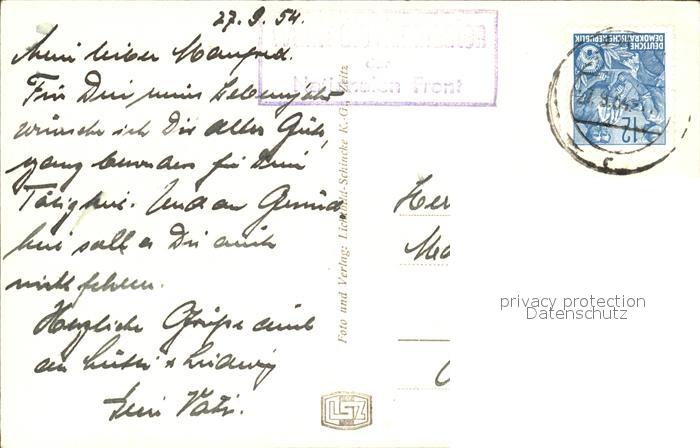 27.9.54.
Mein lieber Manfred.
Für Dein neues Lebensjahr
wünsche ich Dir alles Gute,
ganz besonders für Deine
Tätigkeit. Und an Gesund
heit soll es Dir auch
nicht fehlen.
Herzliche Grüße auch
an Ludwig
Dein Vati.
der
Nationalen Front
Foto und Verlag: Lichtbild-Schincke K.G., Zeitz
LSZ
DEUTSCHE
DEMOKRATISCHE REPUBLIK
12
Her
Ma
privacy protection
Datenschutz